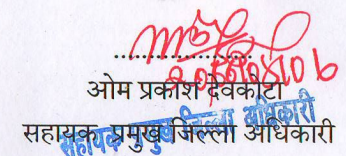 ओम प्रकाश देवकोटा
सहायक प्रमुख जिल्ला अधिकारी
सहायक प्रमुख जिल्ला अधिकारी